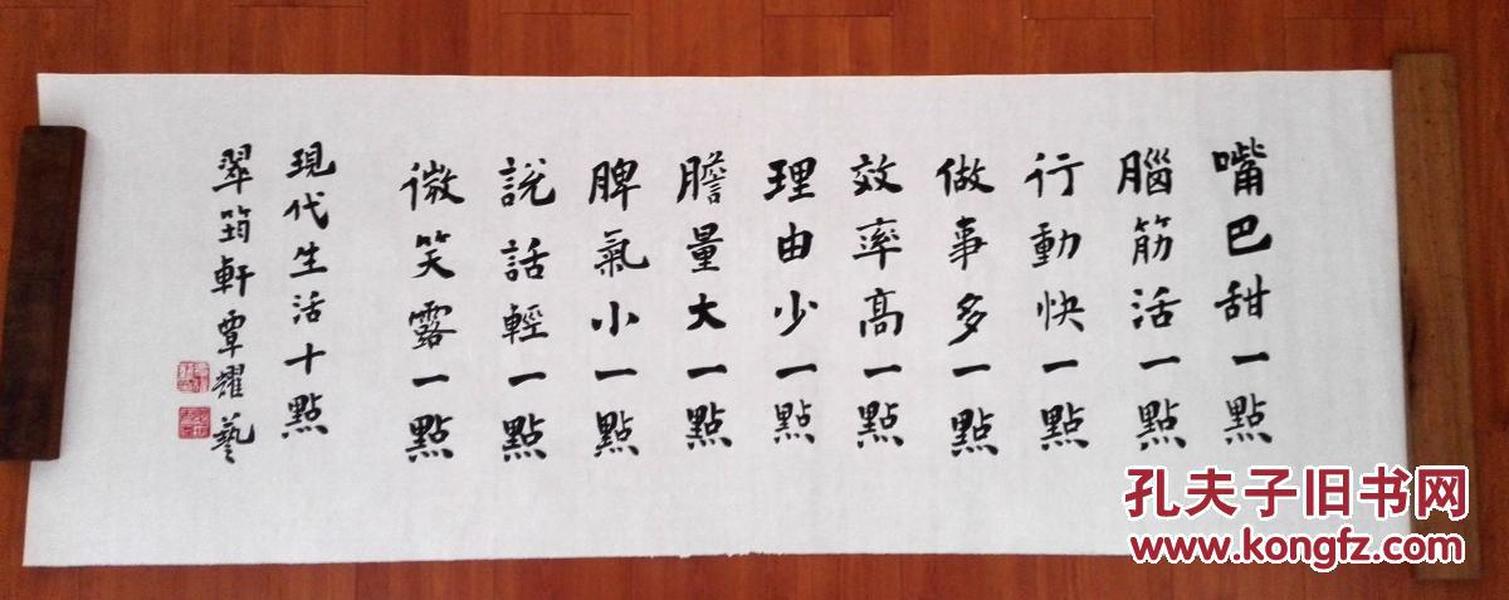 嘴巴甜一點
腦筋活一點
行動快一點
做事多一點
效率高一點
理由少一點
膽量大一點
脾氣小一點
說話輕一點
微笑露一點
現代生活十點
翠筠軒覃耀藝
孔夫子旧书网
www.kongfz.com